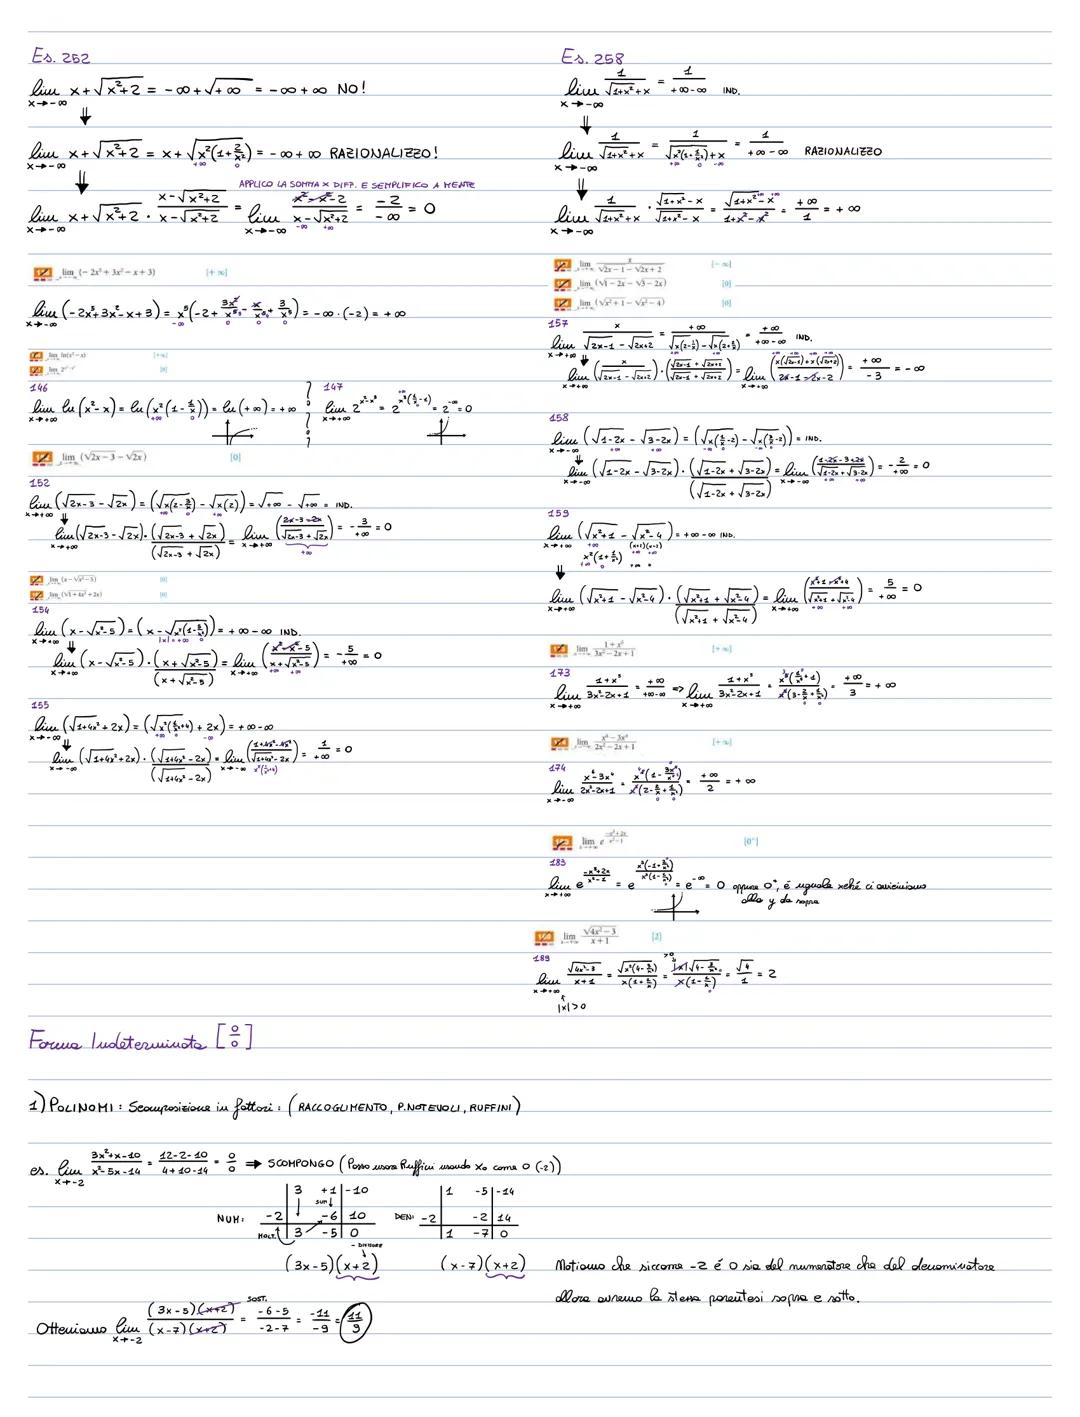 Es. 252
lim x→-∞ x+√(x²+2) = -∞+√+∞ = -∞+∞ NO!
lim x→-∞ x+√(x²+2) = x+√(x²(1+2/x²)) = -∞+∞ RAZIONALIZZO!
APPLICO LA SOMMA × DIFF. E SEMPLIFICO A MENTE
lim x→-∞ x+√(x²+2) · (x-√(x²+2))/(x-√(x²+2)) = lim x→-∞ (x²-x²-2)/(x-√(x²+2)) = -2/-∞ = 0
lim (-2x⁵+3x²-x+3) [+∞]
lim x→-∞ (-2x⁵+3x²-x+3) = x⁵(-2+3x²/x⁵-x/x⁵+3/x⁵) = -∞·(-2) = +∞
lim ln(x²-x) [+∞]
146
lim x→+∞ ln(x²-x) = ln(x²(1-1/x)) = ln(+∞) = +∞
147
lim x→+∞ 2^(x²-x³) = 2^(x³(1/x-1)) = 2^-∞ = 0
lim (√(2x-3) - √(2x)) [0]
152
lim x→+∞ (√(2x-3) - √(2x)) = (√(x(2-3/x)) - √(x(2))) = √+∞ - √+∞ = IND.
lim x→+∞ (√(2x-3) - √(2x)) · (√(2x-3) + √(2x))/(√(2x-3) + √(2x)) = lim x→+∞ ((2x-3-2x)/(√(2x-3) + √(2x))) = -3/+∞ = 0
lim (x-√(x²-5)) [0]
lim (√(1+4x²)+2x) [0]
154
lim x→+∞ (x-√(x²-5)) = (x-√(x²(1-5/x²))) = +∞-∞ IND.
|x|=+∞
lim x→+∞ (x-√(x²-5)) · (x+√(x²-5))/(x+√(x²-5)) = lim x→+∞ ((x²-x²-5)/(x+√(x²-5))) = -5/+∞ = 0
155
lim x→-∞ (√(1+4x²)+2x) = (√(x²(1/x²+4))+2x) = +∞-∞
lim x→-∞ (√(1+4x²)+2x) · (√(1+4x²)-2x)/(√(1+4x²)-2x) = lim x→-∞ ((1+4x²-4x²)/(√(1+4x²)-2x)) = 1/+∞ = 0
Es. 258
lim x→-∞ 1/(√(1+x²)+x) = 1/(+∞-∞) IND.
lim x→-∞ 1/(√(1+x²)+x) = 1/(√(x²(1+1/x²))+x) = 1/(+∞-∞) RAZIONALIZZO
lim x→-∞ 1/(√(1+x²)+x) · (√(1+x²)-x)/(√(1+x²)-x) = (√(1+x²)-x)/(1+x²-x²) = +∞/1 = +∞
lim x/(√(2x-1)-√(2x+2)) [-∞]
lim (√(1-2x)-√(3-2x)) [0]
lim (√(x²+1)-√(x²-4)) [0]
157
lim x→+∞ x/(√(2x-1)-√(2x+2)) = +∞/(√(x(2-1/x))-√(x(2+2/x))) = +∞/(+∞-∞) IND.
lim x→+∞ (x/(√(2x-1)-√(2x+2))) · ((√(2x-1)+√(2x+2))/(√(2x-1)+√(2x+2))) = lim x→+∞ (x(√(2x-1)+√(2x+2))/(2x-1-2x-2)) = +∞/-3 = -∞
158
lim x→-∞ (√(1-2x)-√(3-2x)) = (√(x(1/x-2))-√(x(3/x-2))) = IND.
lim x→-∞ (√(1-2x)-√(3-2x)) · (√(1-2x)+√(3-2x))/(√(1-2x)+√(3-2x)) = lim x→-∞ ((1-2x-3+2x)/(√(1-2x)+√(3-2x))) = -2/+∞ = 0
159
lim x→+∞ (√(x²+1)-√(x²-4)) = +∞-∞ IND.
x²(1+1/x²)
lim x→+∞ (√(x²+1)-√(x²-4)) · (√(x²+1)+√(x²-4))/(√(x²+1)+√(x²-4)) = lim x→+∞ ((x²+1-x²+4)/(√(x²+1)+√(x²-4))) = 5/+∞ = 0
lim (1+x⁵)/(3x²-2x+1) [+∞]
173
lim x→+∞ (1+x⁵)/(3x²-2x+1) = +∞/(+∞-∞) => lim x→+∞ (1+x⁵)/(3x²-2x+1) = x⁵(1/x⁵+1)/(x²(3-2/x+1/x²)) = +∞/3 = +∞
lim (x⁶-3x⁴)/(2x²-2x+1) [+∞]
174
lim x→-∞ (x⁶-3x⁴)/(2x²-2x+1) = +∞/2 = +∞
lim e^((-x³+2x)/(x²-1)) [0⁺]
183
lim x→+∞ e^((-x³+2x)/(x²-1)) = e^(x³(-1+2/x²)/(x²(1-1/x²))) = e^-∞ = 0 oppure 0⁺, é uguale xché ci avviciniamo
alla y da sopra
lim √(4x²-3)/(x+1) [2]
189
lim x→+∞ √(4x²-3)/(x+1) = √(x²(4-3/x²))/(x(1+1/x)) = |x|√(4-3/x²)/(x(1+1/x)) = √4/1 = 2
|x|>0
Forma Indeterminata [0/0]
1) POLINOMI: Scomposizione in fattori: (RACCOGLIMENTO, P.NOTEVOLI, RUFFINI)
es. lim x→-2 (3x²+x-10)/(x²-5x-14) = (12-2-10)/(4+10-14) = 0/0 ⇒ SCOMPONGO (Posso usare Ruffini usando x₀ come 0 (-2))
NUM: 3 +1 -10
SUM
-2 -6 10
MOLT. 3 -5 0
DEN: 1 -5 -14
-2 -2 14
1 -7 0
- DIVISORE
(3x-5)(x+2) (x-7)(x+2)
Notiamo che siccome -2 é 0 sia del numeratore che del denominatore
allora avremo la stessa parentesi sopra e sotto.
Otteniamo lim x→-2 (3x-5)(x+2)/((x-7)(x+2)) SOST. = (-6-5)/(-2-7) = -11/-9 = 11/9